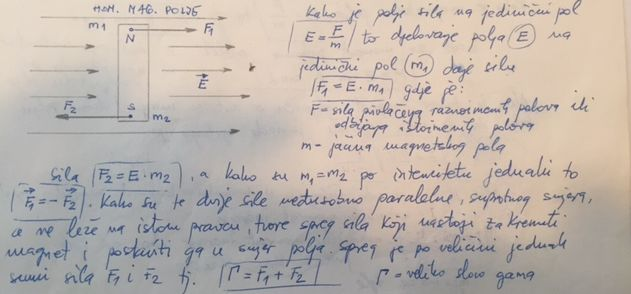 HOM. MAG. POLJE
m1
N
F1
E
F2
S
m2
Kako je polje sila na jedinični pol
E = F/m to djelovanje polja E na
jedinični pol m1 daje silu
F1 = E · m1 gdje je:
F = sila privlačenja raznoimenih polova ili
odbijanja istoimenih polova
m - jačina magnetskog pola
Sila F2 = E · m2, a kako su m1 = m2 po intenzitetu jednaki to
F1 = - F2. Kako su te dvije sile međusobno paralelne, suprotnog smjera,
a ne leže na istom pravcu, tvore spreg sila koji nastoji zakrenuti
magnet i postaviti ga u smjer polja. Spreg je po veličini jednak
sumi sila F1 i F2 tj. Γ = F1 + F2 Γ = veliko slovo gama